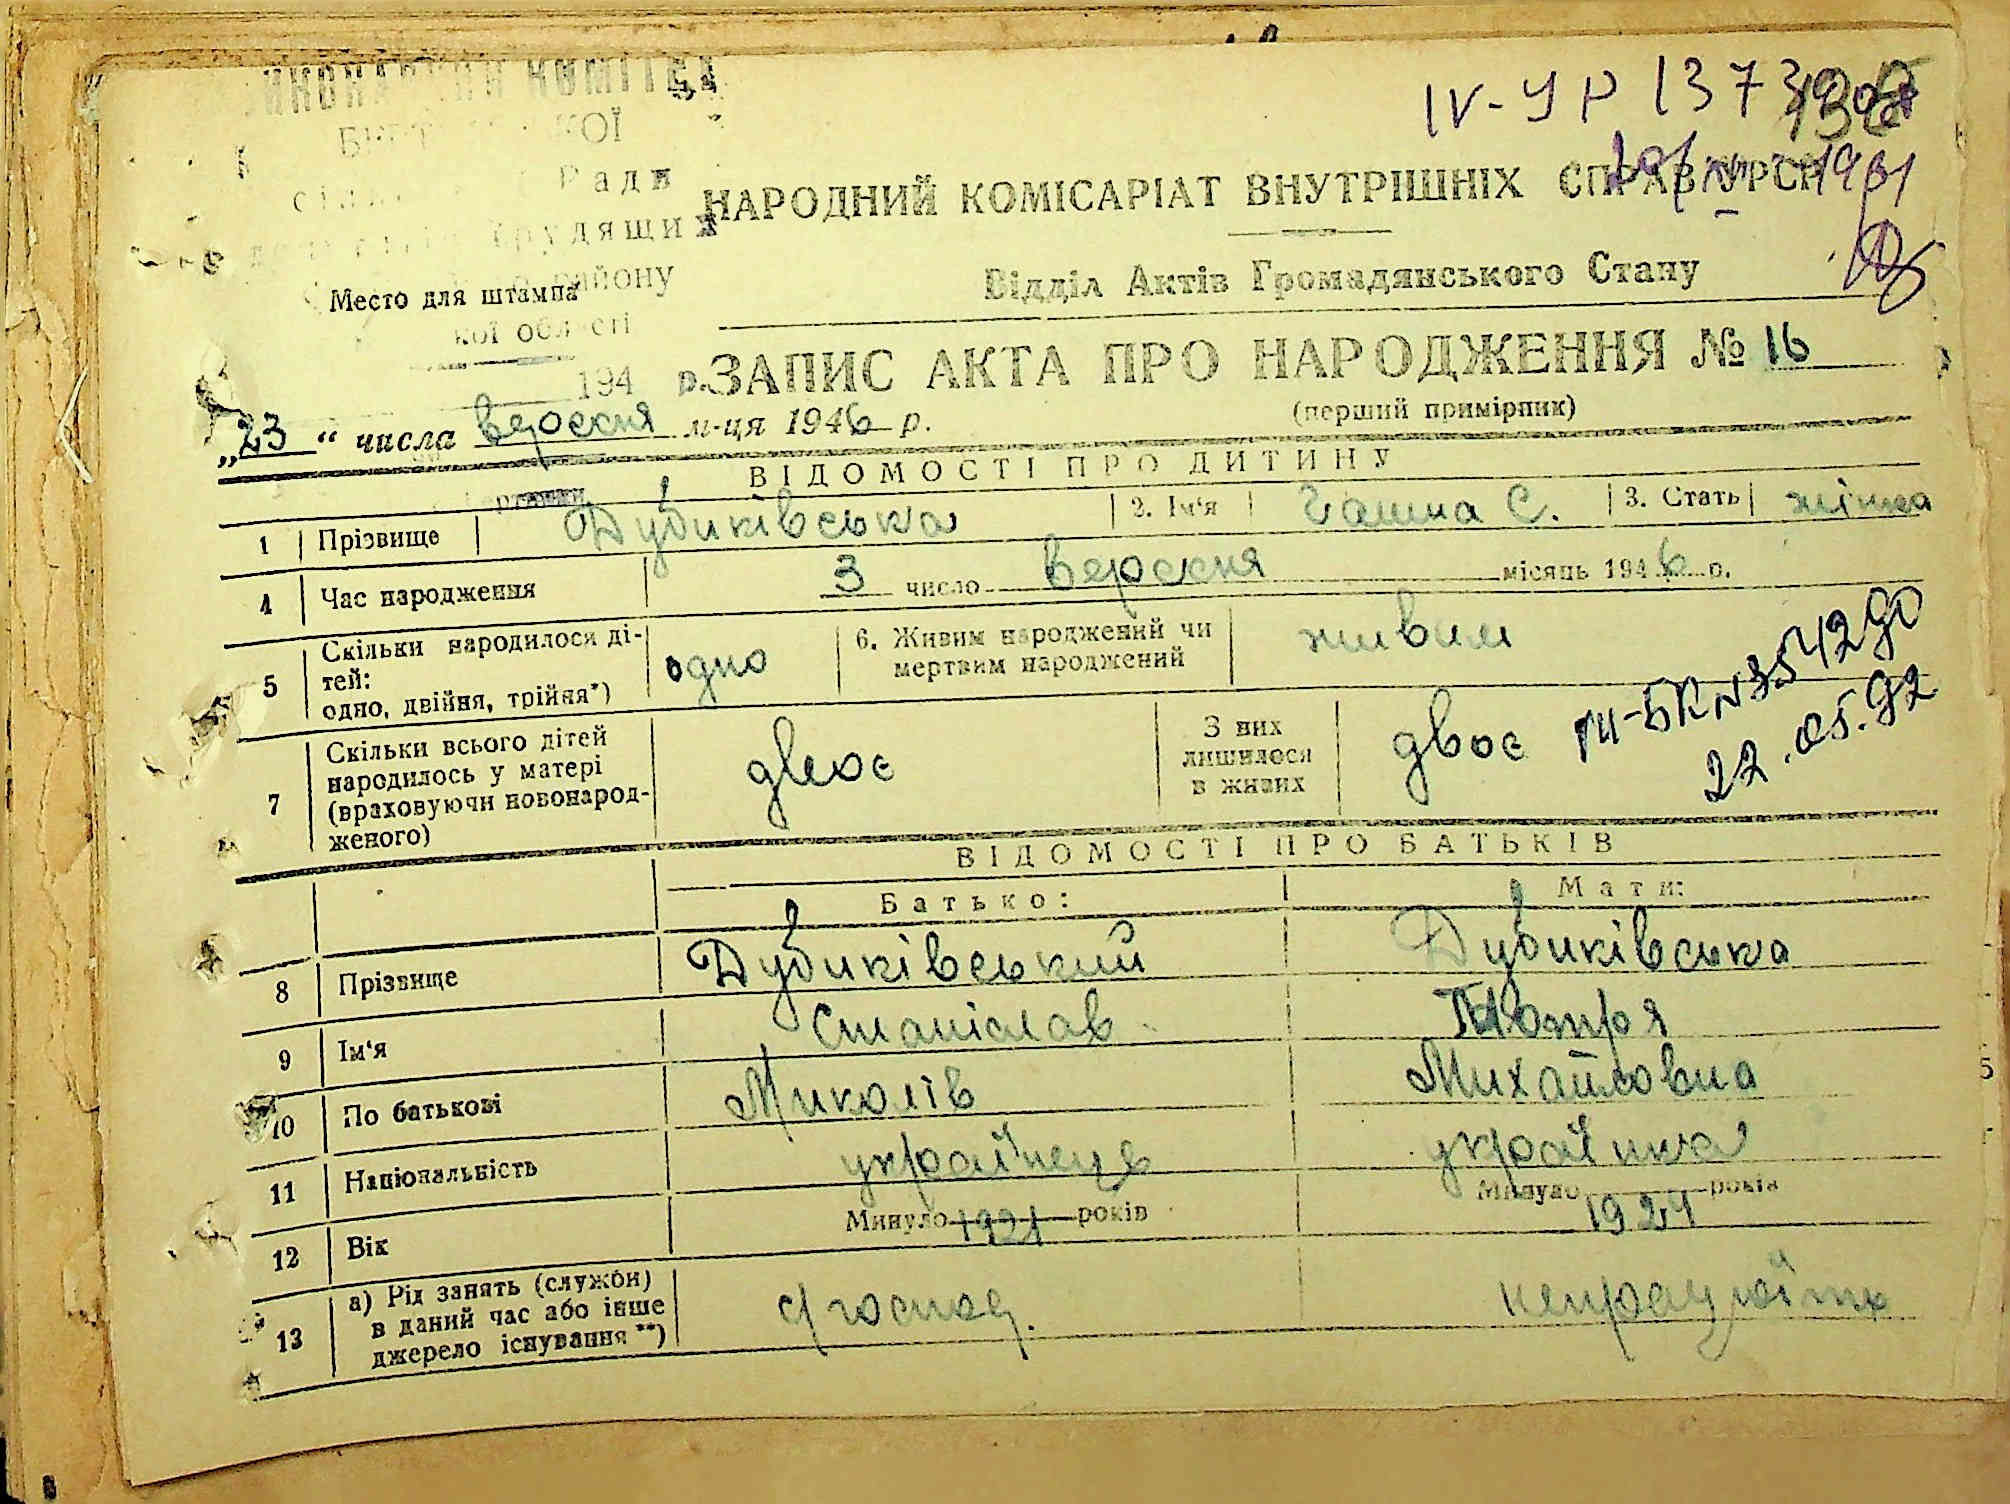 ІV-УР 1373
Ради
трудящих
району
Место для штампа
кої області
194 р.
НАРОДНИЙ КОМІСАРІАТ ВНУТРІШНІХ СПРАВ УРСР
Відділ Актів Громадянського Стану
ЗАПИС АКТА ПРО НАРОДЖЕННЯ № 16
(перший примірник)
„23“ числа вересня м-ця 1946 р.
ВІДОМОСТІ ПРО ДИТИНУ
1 Прізвище Дубиківська 2. Ім'я Ганна С. 3. Стать жінка
4 Час народження 3 число вересня місяць 1946 р.
5 Скільки народилося ді-
тей:
одно, двійня, трійня*) одно 6. Живим народжений чи
мертвим народжений живим
7 Скільки всього дітей
народилось у матері
(враховуючи новонарод-
женого) двоє З них
лишилося
в живих двоє
ІІІ-БК №354290
22.05.92
ВІДОМОСТІ ПРО БАТЬКІВ
Батько: Мати:
8 Прізвище Дубиківський Дубиківська
9 Ім'я Станіслав
10 По батькові Миколів Михайловна
11 Національність українець українка
12 Вік Минуло 1921 років Минуло 1924 років
13 а) Рід занять (служби)
в даний час або інше
джерело існування **) с/господ. непрацюїть